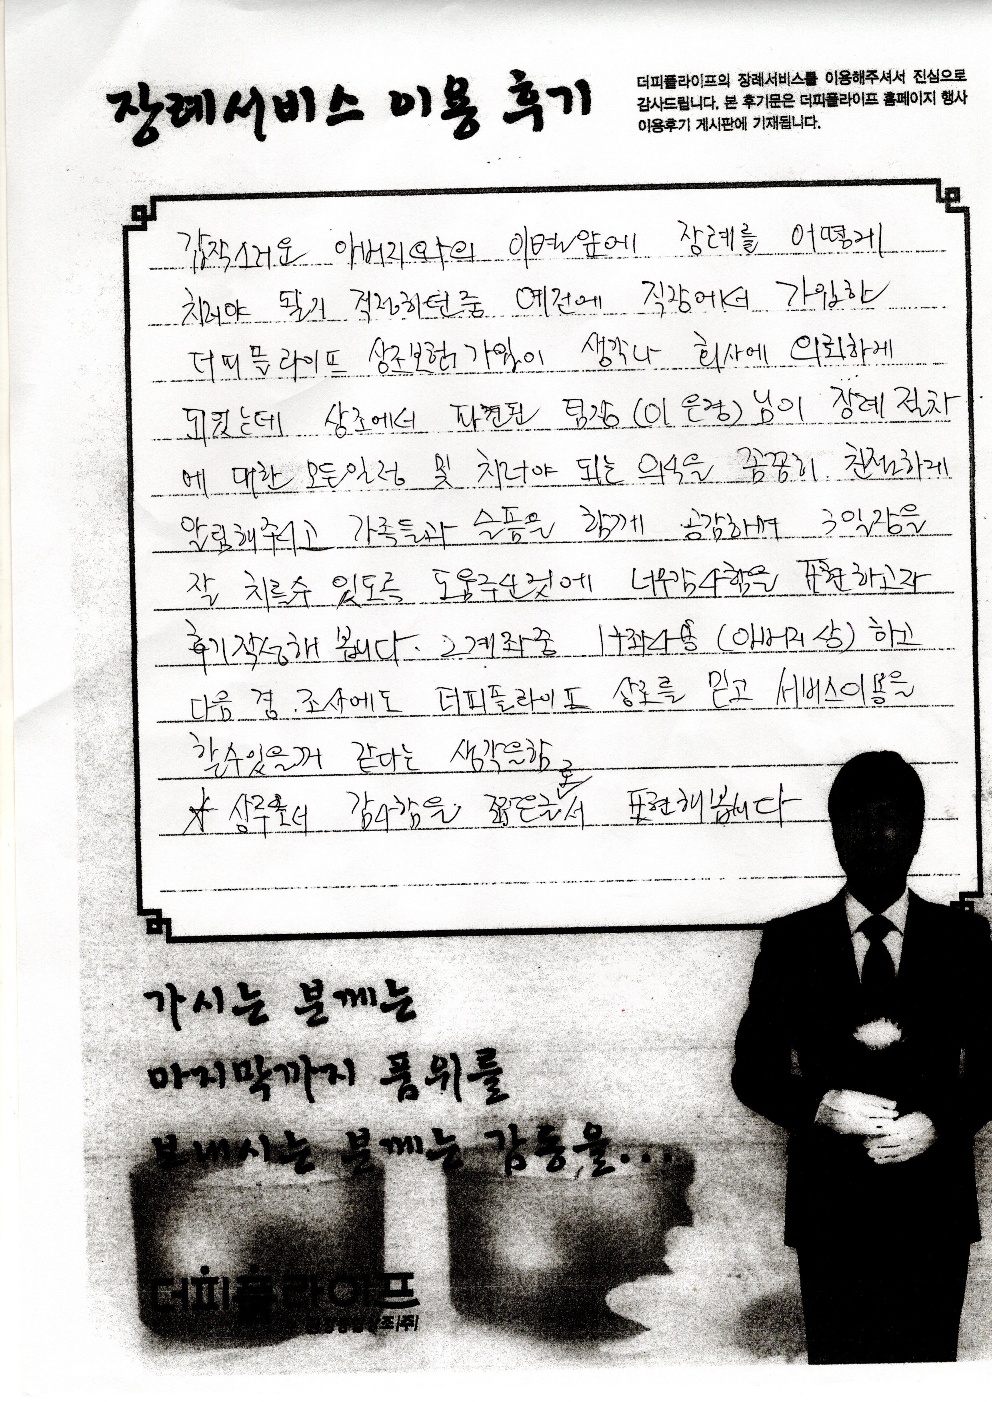 장례서비스 이용 후기
더피플라이프의 장례서비스를 이용해주셔서 진심으로
감사드립니다. 본 후기문은 더피플라이프 홈페이지 행사
이용후기 게시판에 기재됩니다.
갑작스러운 아버지와의 이별앞에 장례를 어떻게
치러야 될지 걱정하던중 예전에 직장에서 가입한
더피플라이프 상조보험 가입이 생각나 회사에 의뢰하게
되었는데 상조에서 파견된 팀장(이은경)님이 장례절차
에 대한 모든일정 및 치러야 되는 의식을 꼼꼼히 친절하게
알림해주시고 가족들과 슬픔을 함께 공감하며 3일장을
잘 치를수 있도록 도움주신것에 너무감사함을 표현하고자
후기작성해 봅니다. 2계좌중 1구좌사용 (아버지상) 하고
다음 경.조사에도 더피플라이프 상조를 믿고 서비스이용을
할수있을꺼 같다는 생각을함
* 상주로서 감사함을 짧은글로서 표현해봅니다
가시는 분께는
마지막까지 품위를
보내시는 분께는 감동을...
더피플라이프